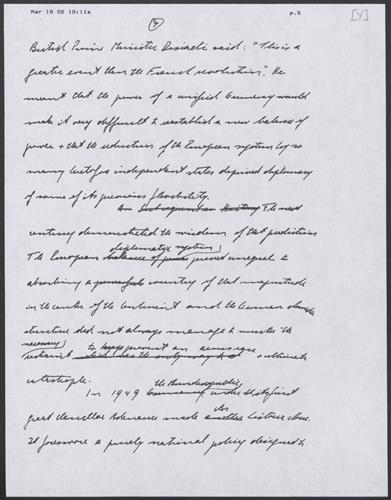 Mar 19 05 10:11a p.5 [Y]
British Prime Minister Disraeli said: "This is a
greater event than the French revolution." He
meant that the power of a unified Germany would
make it very difficult to establish a new balance of
power & that the reduction of the European system by so
many independent states deprived diplomacy
of some of its previous flexibility.
The next
century demonstrated the wisdom of that prediction
diplomatic system
The European balance of power proved unequal to
absorbing a powerful country of that magnitude
in the center of the continent and the German
structure did not always manage to muster the
necessary
restraint to prevent an
catastrophe.
the Bundesrepublik
In 1949 Germany under its first
great chancellor Adenauer made another historic choice.
It foreswore a purely national policy designed to